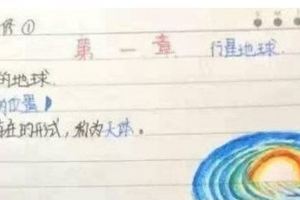 修①
第一章 行星地球
的地球.
的位置
存在的形式，称为天体。